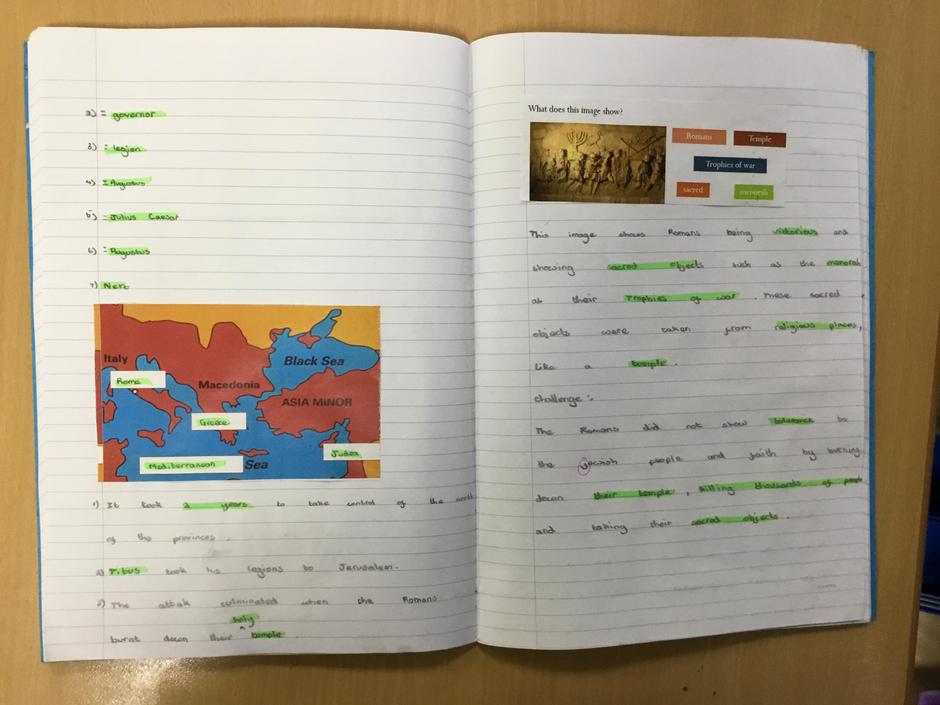 2) = governor
3) = legion
4) = Augustus
5) = Julius Caesar
6) = Augustus
7) Nero
Italy
Black Sea
Rome
Macedonia
ASIA MINOR
Greece
Judea
Mediterranean Sea
1) It took 2 years to take control of the
of the provinces.
2) Titus took his legions to Jerusalem.
3) The attak culminated when the Romans
holy
burnt down their ^ temple.
What does this image show?
Romans
Temple
Trophies of war
sacred
menorah
This image shows Romans being victorious and
showing sacred objects such as the menorah
as their Trophies of war. These sacred
objects were taken from religious places,
like a temple.
Challenge:
The Romans did not show tolerance to
the jewish people and faith by burning
down their temple, killing thousands of people
and taking their sacred objects.